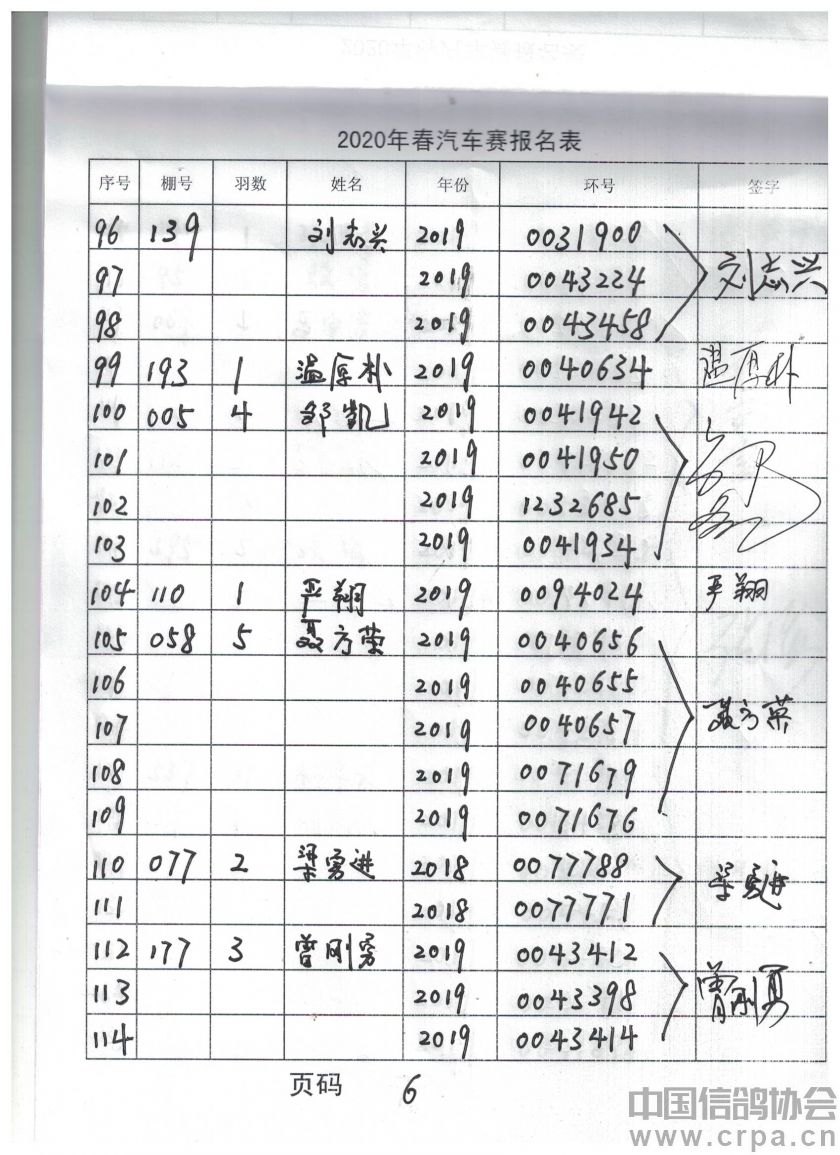 2020年春汽车赛报名表
序号 棚号 羽数 姓名 年份 环号 签字
96 139 刘志兴 2019 0031900
97 2019 0043224 刘志兴
98 2019 0043458
99 193 1 温厚朴 2019 0040634 温厚朴
100 005 4 邹凯 2019 0041942
101 2019 0041950
102 2019 1232685
103 2019 0041934
104 110 1 严翔 2019 0094024 严翔
105 058 5 聂方荣 2019 0040656
106 2019 0040655
107 2019 0040657 聂方荣
108 2019 0071679
109 2019 0071676
110 077 2 梁勇进 2018 0077788
111 2018 0077771
112 177 3 曾刚勇 2019 0043412
113 2019 0043398 曾刚勇
114 2019 0043414
页码 6
中国信鸽协会
www.crpa.cn